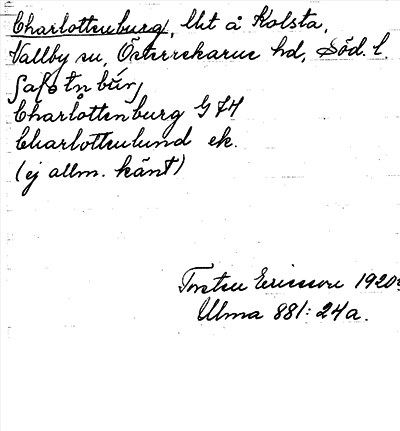 Charlottenburg, lht å Kolsta,
Vallby sn, Österrekarne hd, Söd. l.
Charlottenburg GFH
Charlottenlund ek.
(ej allm. känt)
Torsten Ericsson 1920
Ulma 881: 24a.